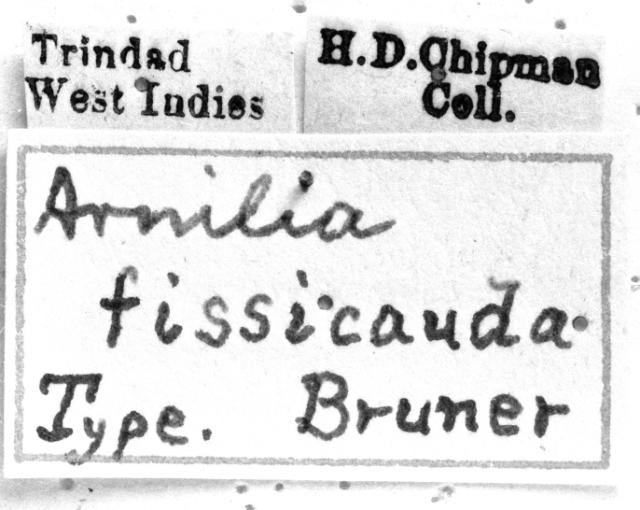 Trindad
West Indies
H.D.Chipman
Coll.
Arnilia
fissicauda.
Type. Bruner